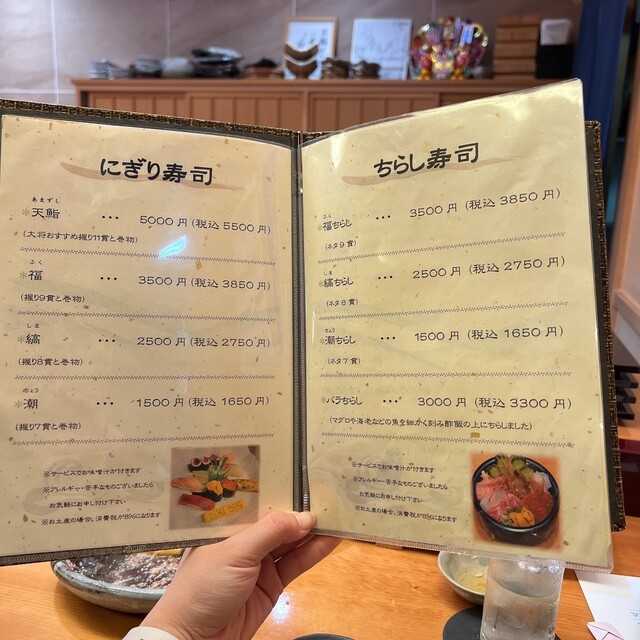 にぎり寿司
あまずし
*天鮨 ・・・ 5000円(税込5500円)
(大将おすすめ握り11貫と巻物)
ふく
*福 ・・・ 3500円(税込3850円)
(握り9貫と巻物)
しま
*縞 ・・・ 2500円(税込2750円)
(握り8貫と巻物)
*潮 ・・・ 1500円(税込1650円)
(握り7貫と巻物)
※サービスでお味噌汁が付きます
※アレルギー・苦手な物がございましたら
お気軽にお申し付け下さい
※お土産の場合、消費税が8%になります
ちらし寿司
ふく
*福ちらし ・・・ 3500円(税込3850円)
(ネタ9貫)
しま
*縞ちらし ・・・ 2500円(税込2750円)
(ネタ8貫)
ちょう
*潮ちらし ・・・ 1500円(税込1650円)
(ネタ7貫)
*バラちらし ・・・ 3000円(税込3300円)
(マグロや海老などの魚を細かく刻み酢飯の上にちらしました)
※サービスでお味噌汁が付きます
※アレルギー・苦手な物がございましたら
お気軽にお申し付け下さい
※お土産の場合、消費税が8%になります